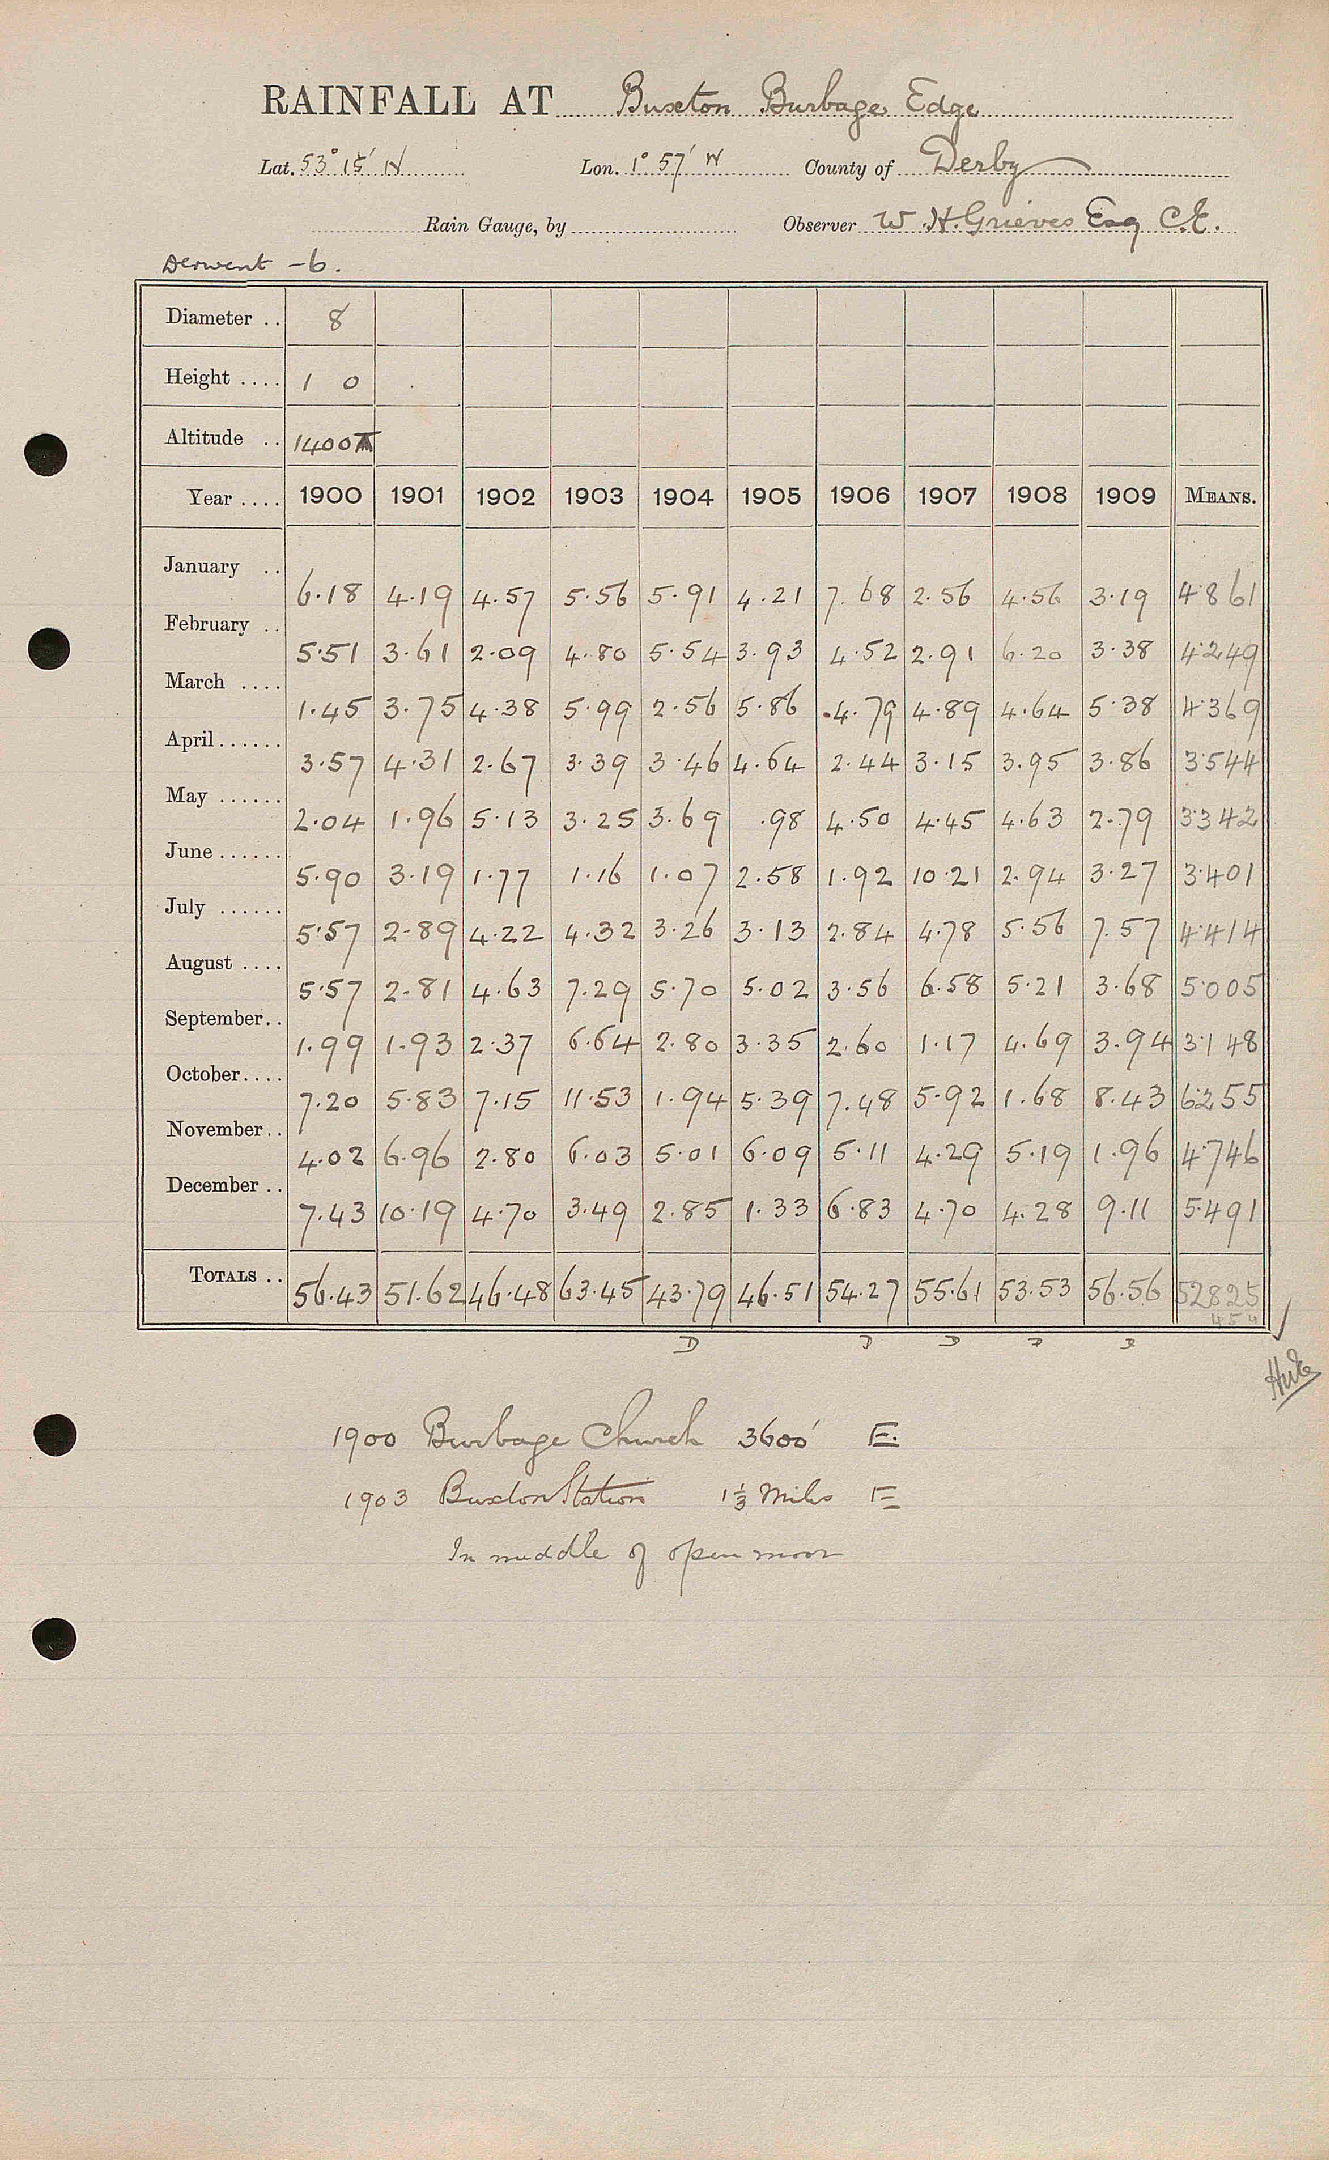 RAINFALL AT Buxton Burbage Edge
Lat. 53° 15' N Lon. 1° 57' W County of Derby
Rain Gauge, by Observer W. H. Grieves Esq C.E.
Derwent - 6.
Diameter .. 8
Height .... 1 0
Altitude .. 1400
Year .... 1900 1901 1902 1903 1904 1905 1906 1907 1908 1909 MEANS.
January .. 6.18 4.19 4.57 5.56 5.91 4.21 7.68 2.56 4.56 3.19 4.861
February .. 5.51 3.61 2.09 4.80 5.54 3.93 4.52 2.91 6.20 3.38 4.249
March .... 1.45 3.75 4.38 5.99 2.56 5.86 4.79 4.89 4.64 5.38 4.369
April...... 3.57 4.31 2.67 3.39 3.46 4.64 2.44 3.15 3.95 3.86 3.544
May ...... 2.04 1.96 5.13 3.25 3.69 .98 4.50 4.45 4.63 2.79 3.342
June...... 5.90 3.19 1.77 1.16 1.07 2.58 1.92 10.21 2.94 3.27 3.401
July ...... 5.57 2.89 4.22 4.32 3.26 3.13 2.84 4.78 5.56 7.57 4.414
August .... 5.57 2.81 4.63 7.29 5.70 5.02 3.56 6.58 5.21 3.68 5.005
September.. 1.99 1.93 2.37 6.64 2.80 3.35 2.60 1.17 4.69 3.94 3.148
October.... 7.20 5.83 7.15 11.53 1.94 5.39 7.48 5.92 1.68 8.43 6.255
November.. 4.02 6.96 2.80 6.03 5.01 6.09 5.11 4.29 5.19 1.96 4.746
December .. 7.43 10.19 4.70 3.49 2.85 1.33 6.83 4.70 4.28 9.11 5.491
TOTALS .. 56.43 51.62 46.48 63.45 43.79 46.51 54.27 55.61 53.53 56.56 52825
D D D D D
1900 Burbage Church 3600' E.
1903 Buxton Station 1 1/3 Miles E
In middle of open moor